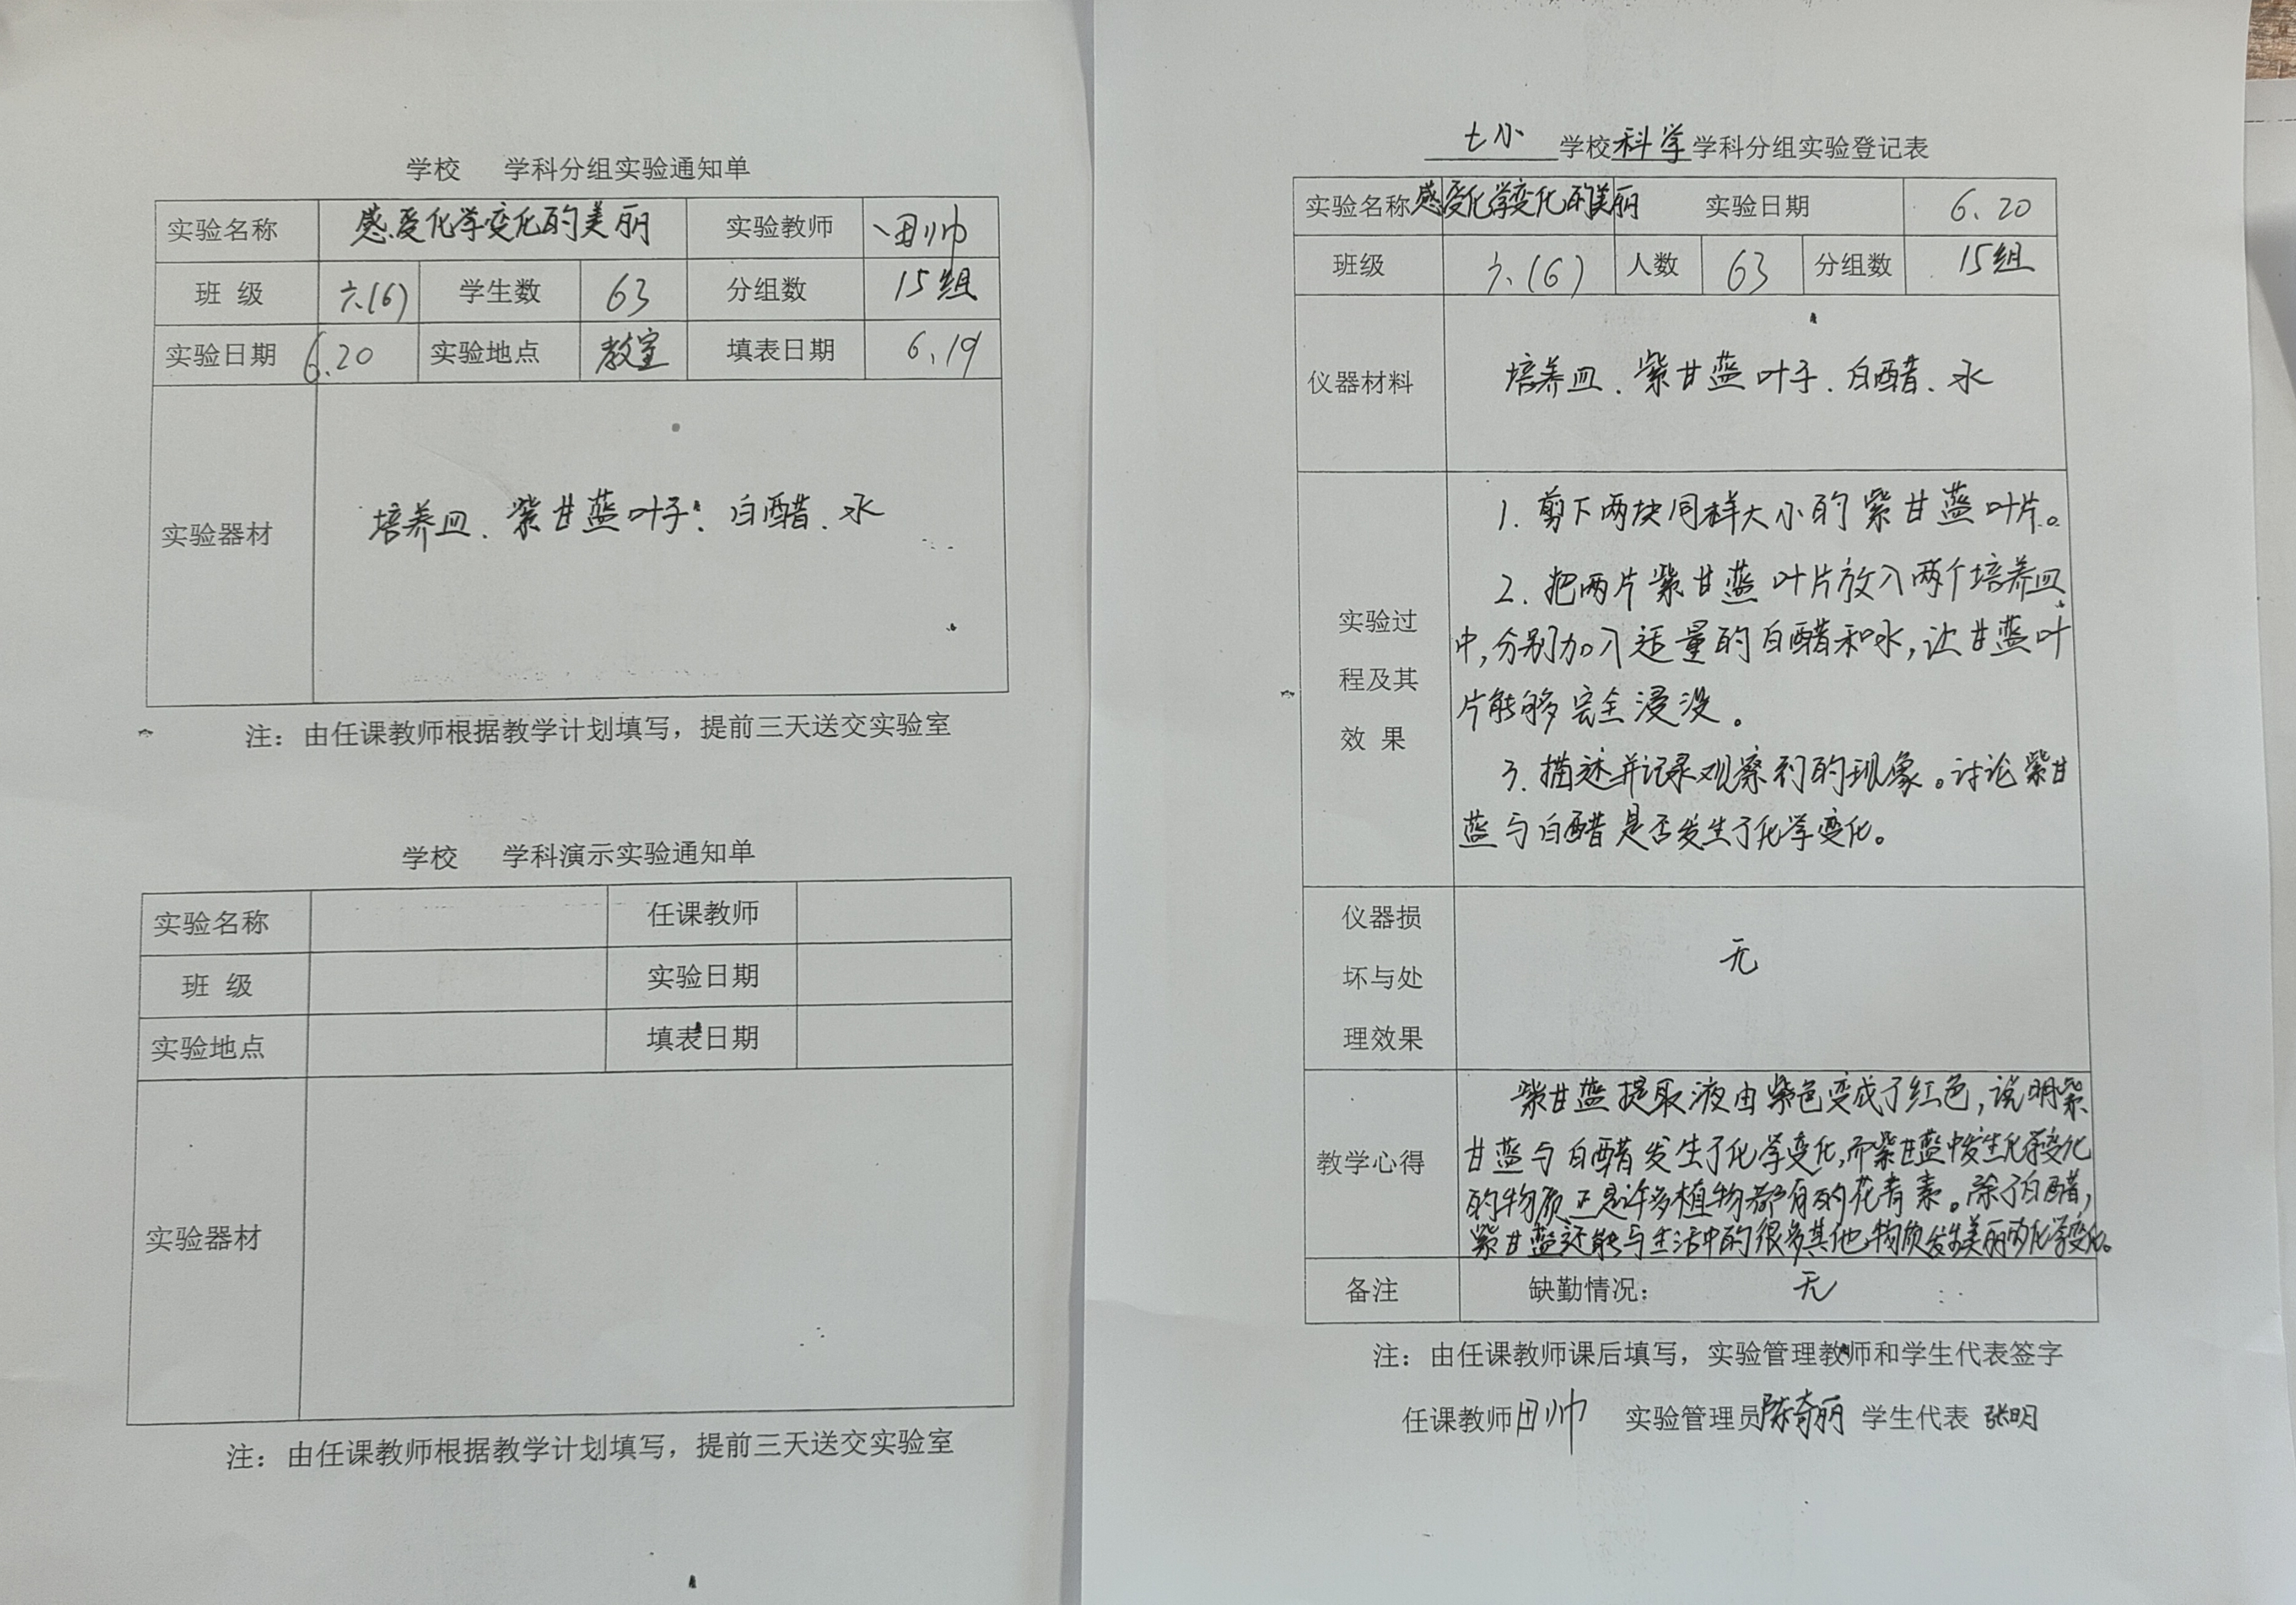 学校 学科分组实验通知单
实验名称 感受化学变化的美丽 实验教师 田帅
班 级 六.(6) 学生数 63 分组数 15组
实验日期 6.20 实验地点 教室 填表日期 6.19
实验器材 培养皿、紫甘蓝叶子、白醋、水
注：由任课教师根据教学计划填写，提前三天送交实验室
学校 学科演示实验通知单
实验名称 任课教师
班 级 实验日期
实验地点 填表日期
实验器材
注：由任课教师根据教学计划填写，提前三天送交实验室
七小 学校科学学科分组实验登记表
实验名称 感受化学变化的美丽 实验日期 6.20
班级 六.(6) 人数 63 分组数 15组
仪器材料 培养皿、紫甘蓝叶子、白醋、水
实验过
程及其
效 果
1. 剪下两块同样大小的紫甘蓝叶片。
2. 把两片紫甘蓝叶片放入两个培养皿
中,分别加入适量的白醋和水,让甘蓝叶
片能够完全浸没。
3. 描述并记录观察到的现象。讨论紫甘
蓝与白醋是否发生了化学变化。
仪器损
坏与处
理效果
无
教学心得
紫甘蓝提取液由紫色变成了红色,说明紫
甘蓝与白醋发生了化学变化,而紫甘蓝中发生化学变化
的物质正是许多植物都有的花青素。除了白醋,
紫甘蓝还能与生活中的很多其他物质发生美丽的化学变化。
备注 缺勤情况： 无
注：由任课教师课后填写，实验管理教师和学生代表签字
任课教师田帅 实验管理员陈奇丽 学生代表 张明